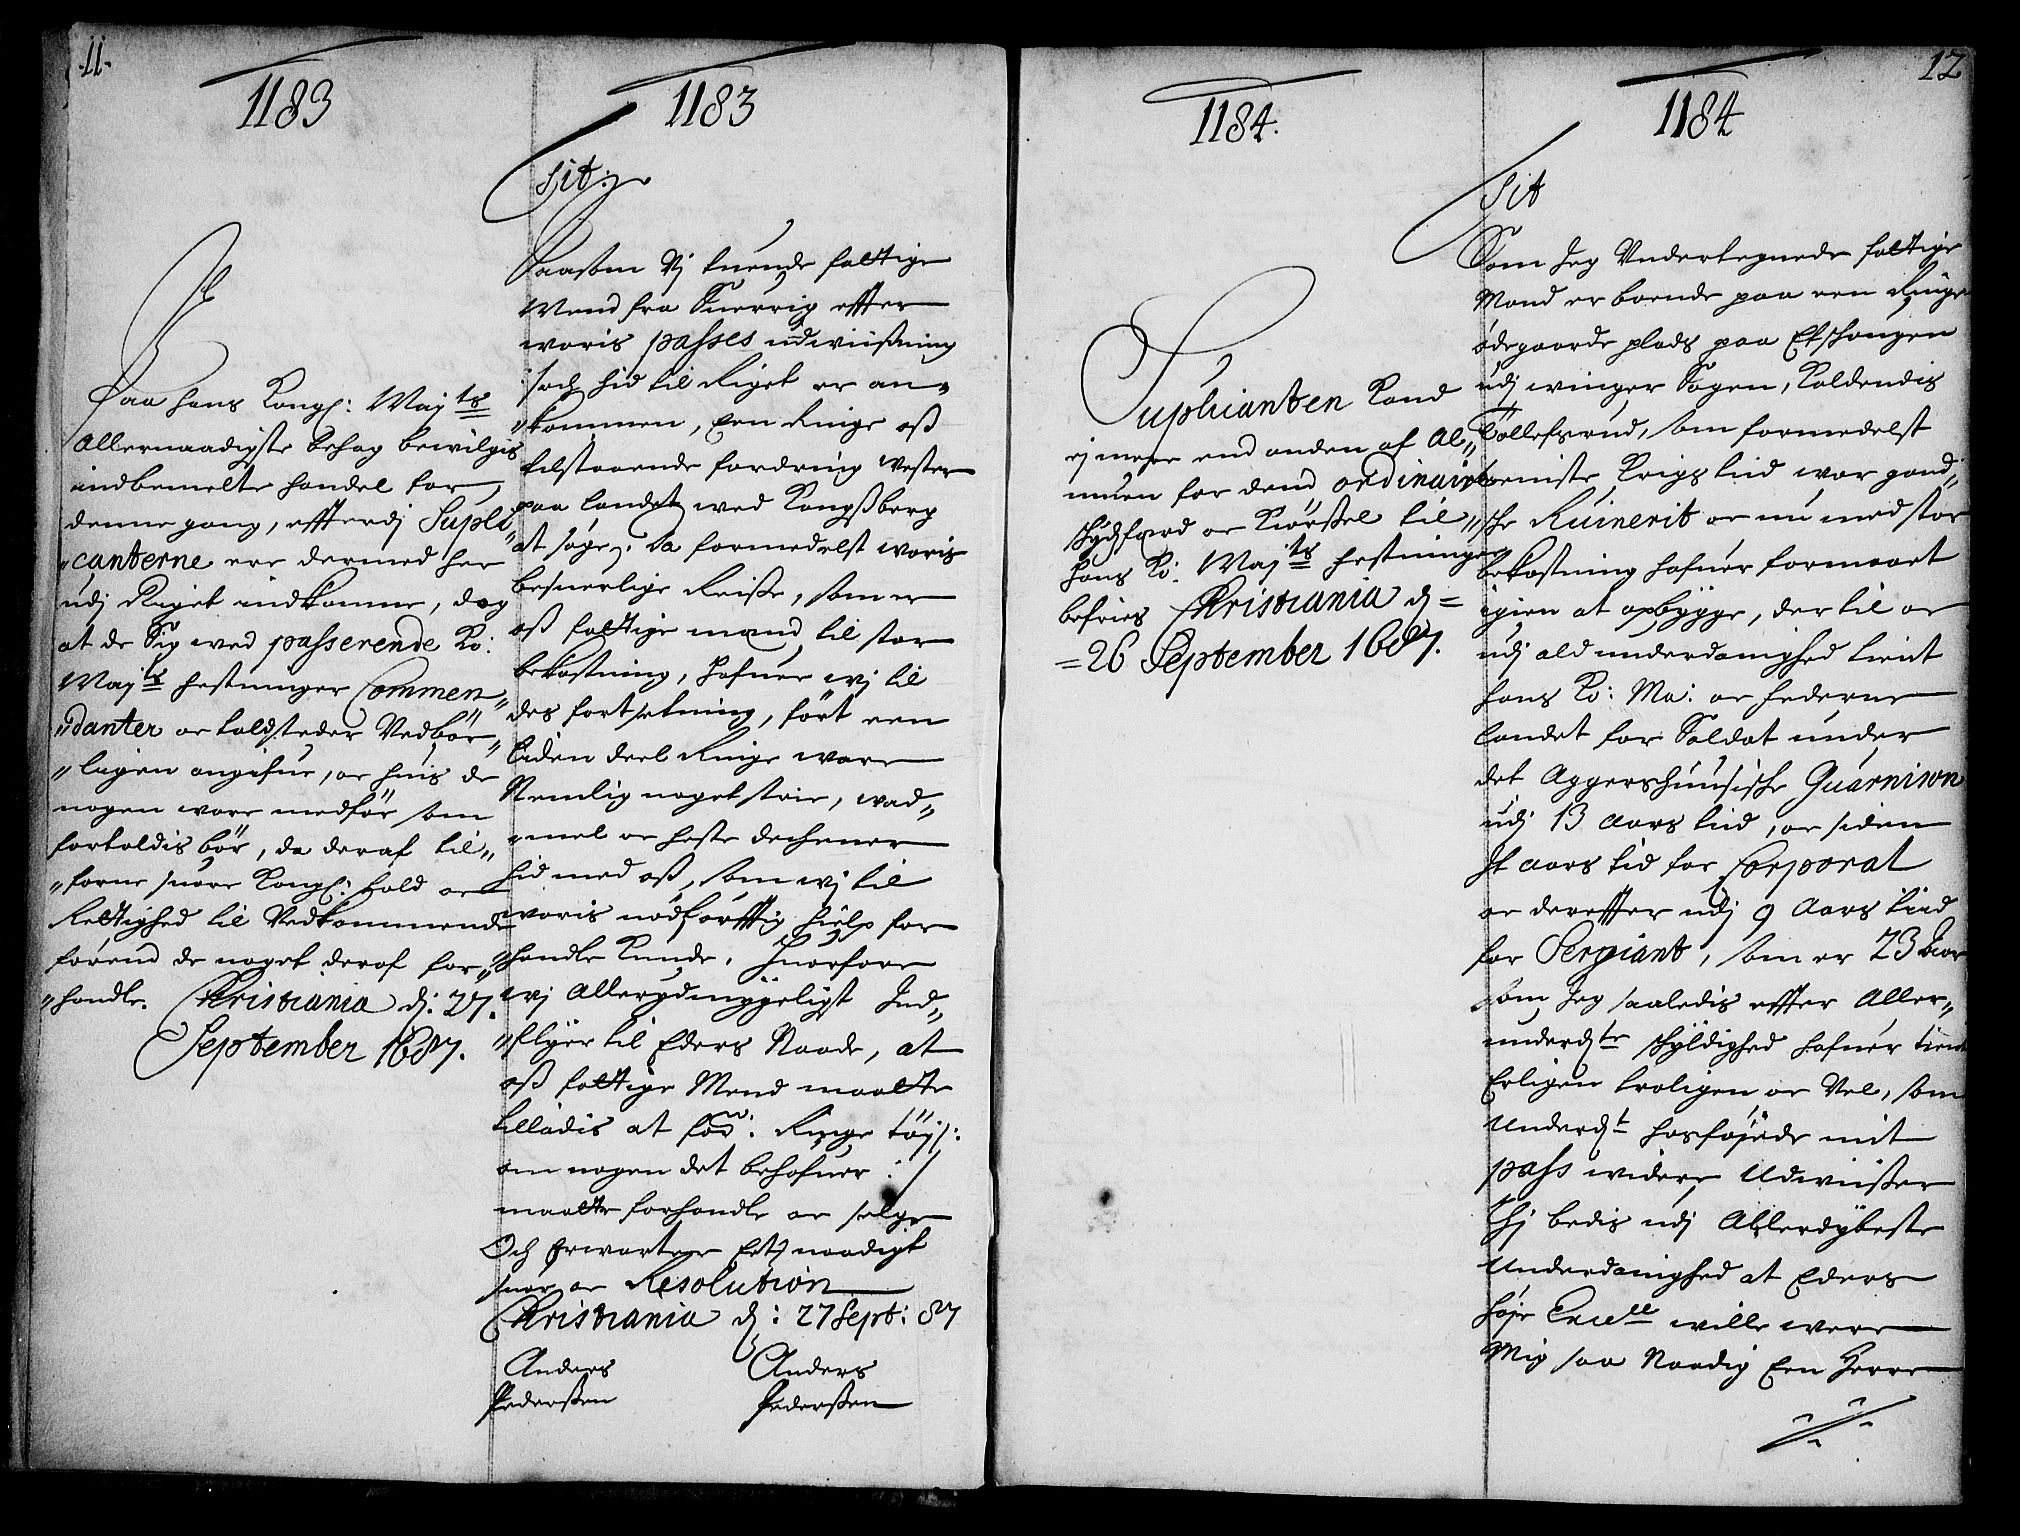 11.
1183
Paa hans Kongl: Majts
Allernaadigste behag bewilgis
indbemelte handel for
denne gang, effterdj Supli
"canterne ere dermed her
udj Riget indkomne, dog
at de Sig wed passerende Ko:
Majts festninger Commen"
"danter oc toldsteder Vedbör"
"ligen angifue, oc huis de
nogen ware medför som
fortoldis bör, da deraf til"
"forne suare Kongl: told oc
Rettighed til Vedkommende
förend de noget deraf for"
"handle. Christiania dj: 27.
September 1687.
1183
Sit:
Saasom Vj tuende fattige
Mend fra Suerrig effter
woris passes udwiißning
och hid til Riget er an"
"kommen, een Ringe oß
tilstaaende fordring Vester
paa landet wed Kongßberg
at söge, Da formedelst woris
besuerlige Reiße, som er
oß fattige mænd til stor
bekostning, hafuer wj til
des fortsetning, fört een
liden deel Ringe ware
Nemlig noget , wad"
"mel oc heste dechener
hid med oß, som wj til
woris nödtörfftig hielp for
handle Kunde, Huorfore
wj Allerydmygeligst Ind"
"flyer til Eders Naade, at
oß fattige Mend maatte
tilladis at for: Ringe töj/:
om nogen det behöfuer :/
maatte forhandle oc selge
Och forwarter et naadigt
suar oc Resolution
Christiania dj: 27 Sept: 87
Anders Anders
Pederßen Pederßen
1184.
Suplicanten Kand
ej mere end anden af Al"
muen for dend ordinaire
skydsferd oc Kiörßel til"
hans Ko: Majts festninger
befries Christiania dj=
=26 September 1687.
12
1184
Sit
Som Jeg Vndertegnede fattige
Mand er boende paa een Ringe
ödegaards plads paa Eskougen
udj winger Sogen, Kaldendis
Tollefsrud, som formedelst
seeniste Krigs tiid war gand"
ske Ruinerit oc nu med stor
bekostning hafuer formaaet
igien at opbygge, der til oc
udj ald underdanighed tient
hans Ko: Ma: oc federne
landet for Soldat under
det Aggershuusiske Guarnison
udj 13 Aars tiid, oc siden
It aars tid for Corporal
oc dereffter udj 9 Aars tiid
for Sergiant, som er 23 Aar
som Jeg saaledis effter Aller"
underdte skyldighed hafuer tient
Erligen troligen oc Vel, som
Underdt hosföjede mit
pass widere Udwiißer
Thj bedis udj Allerdybeste
Underdanighed at Eders
höje Excelle wille were
Mig saa Naadig Een Herre